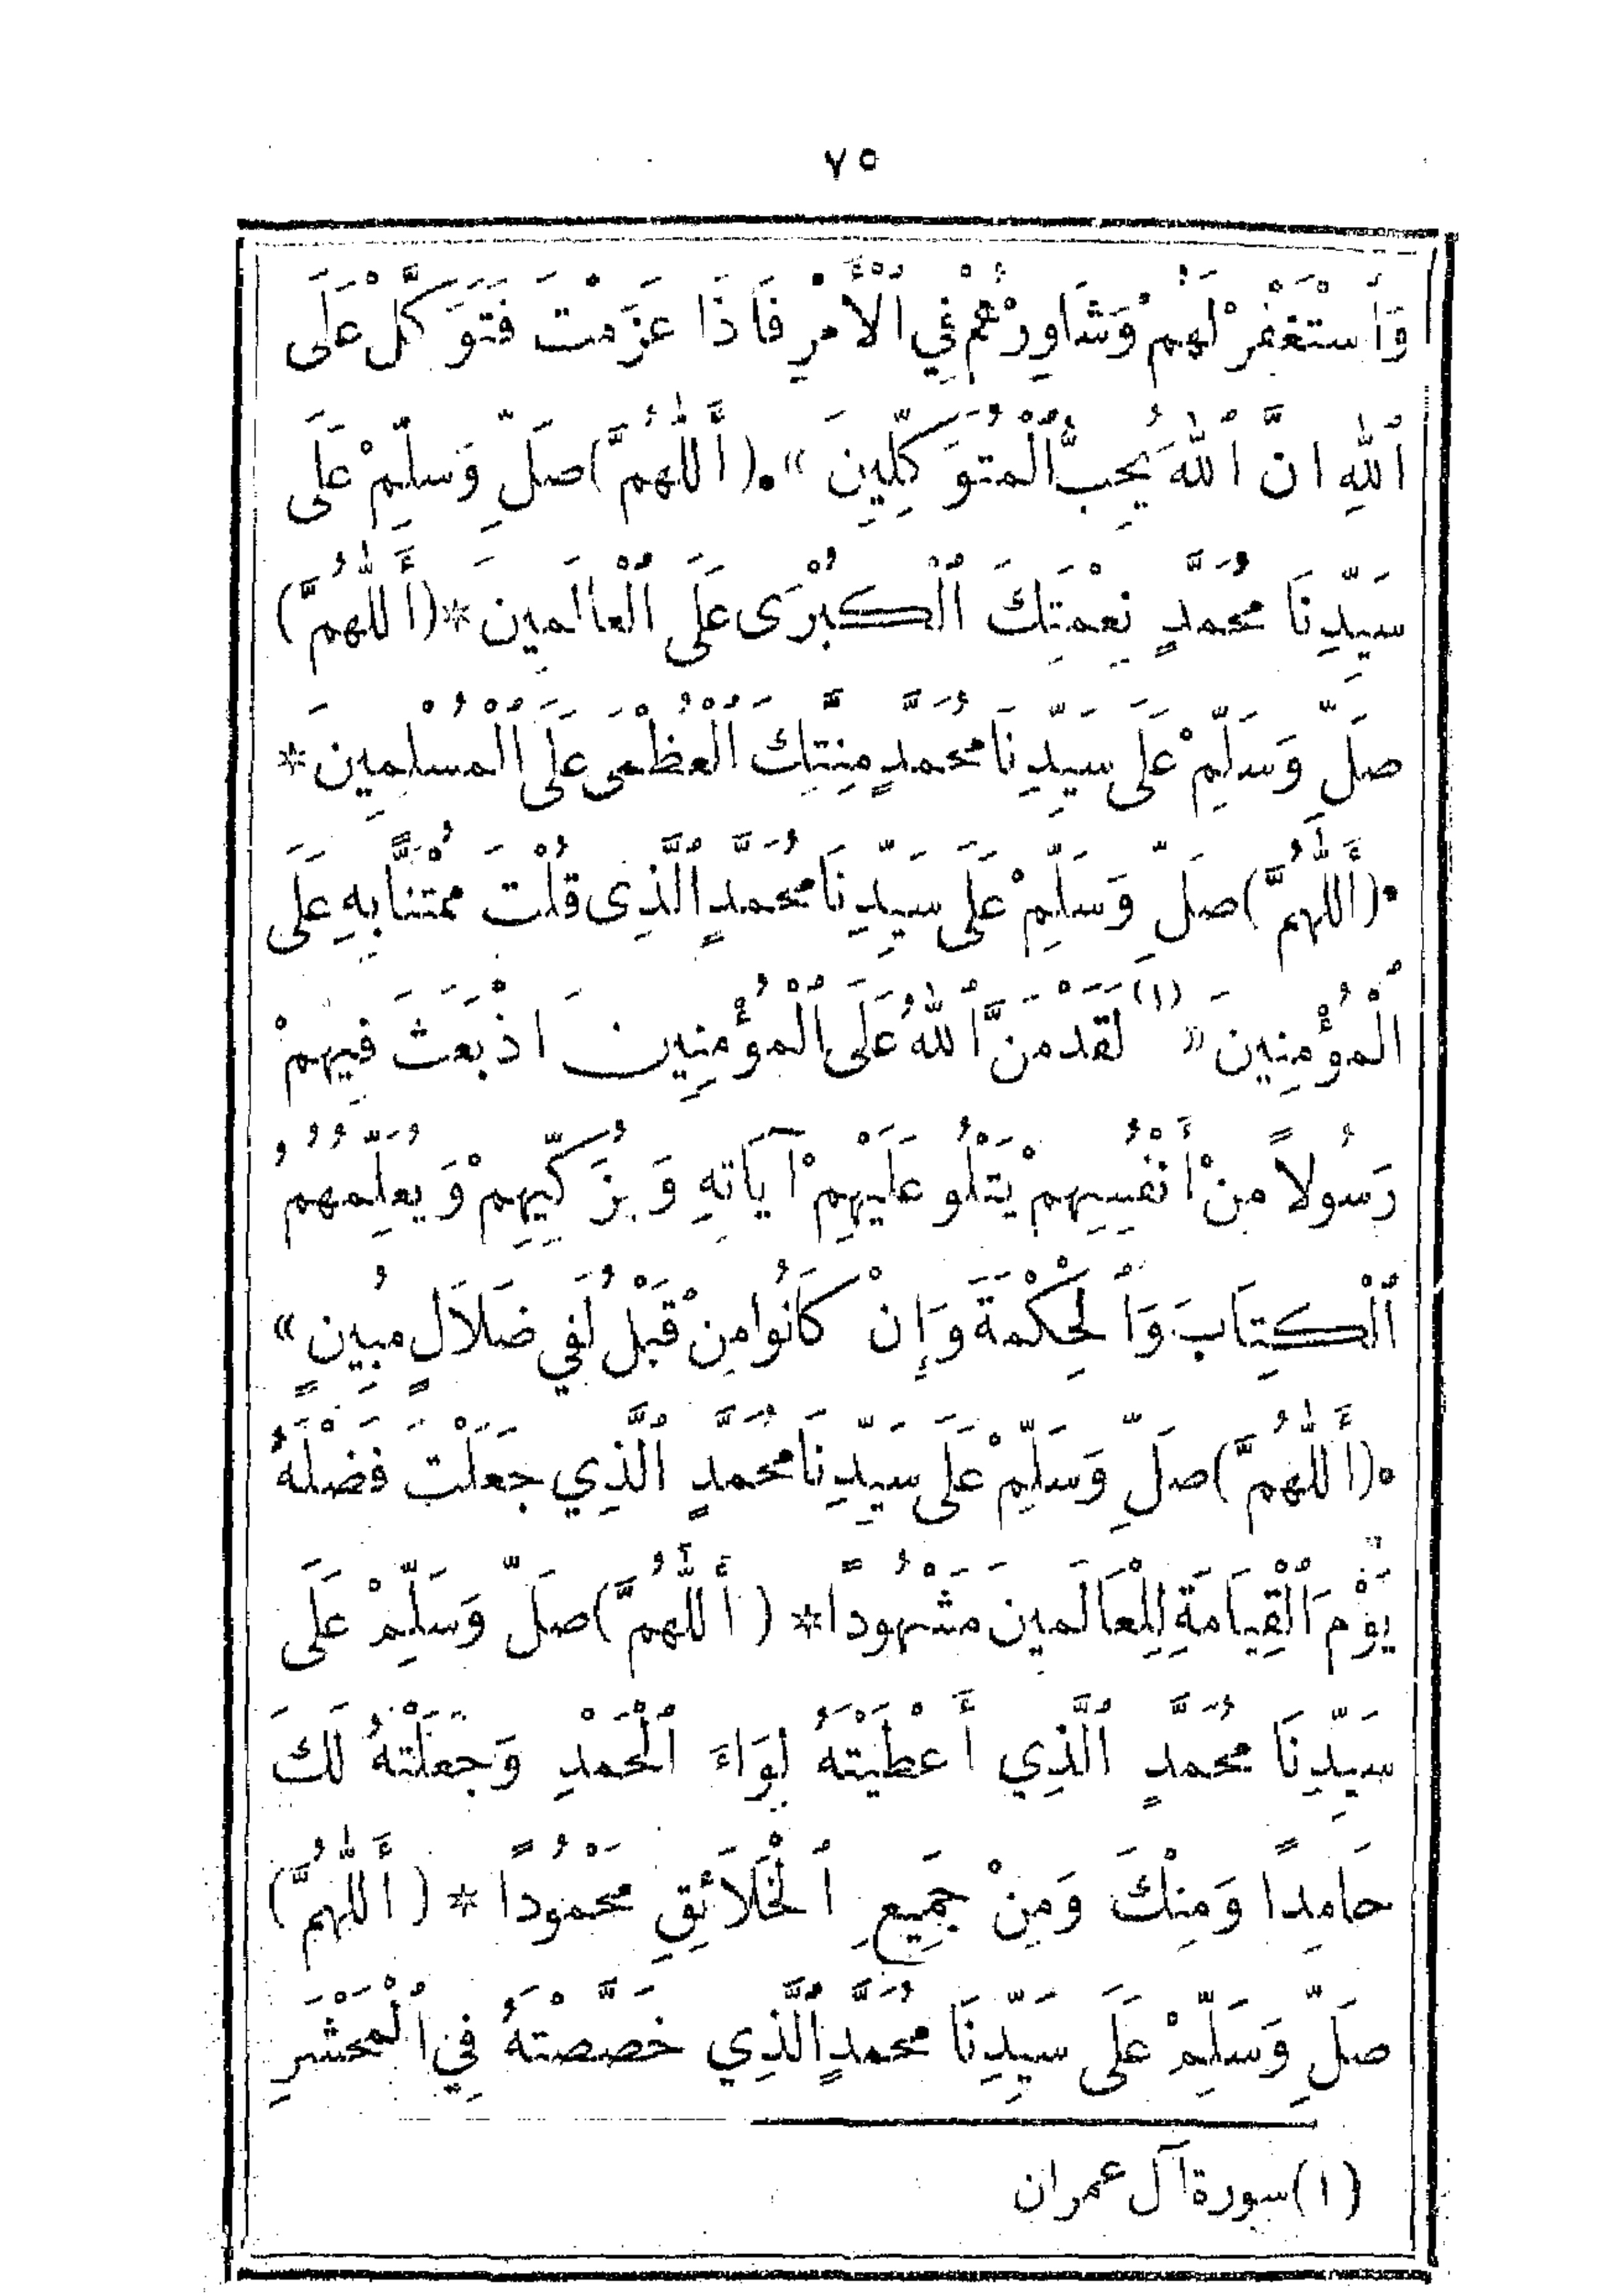 ٧٥
وَٱسْتَغْفِرْ لَهُمْ وَشَاوِرْهُمْ فِي ٱلْأَمْرِ فَاذَا عَزَمْتَ فَتَوَكَّلْ عَلَى
ٱللهِ انَّ ٱللهَ يُحِبُّ ٱلْمُتَوَكِّلِينَ » . (أَللّٰهُمَّ) صَلِّ وَسَلِّمْ عَلَى
سَيِّدِنَا مُحَمَّدٍ نِعْمَتِكَ ٱلْكُبْرَى عَلَى ٱلْعَالَمِينَ * (أَللّٰهُمَّ)
صَلِّ وَسَلِّمْ عَلَى سَيِّدِنَا مُحَمَّدٍ مِنَّتِكَ ٱلْعُظْمَى عَلَى ٱلْمُسْلِمِينَ *
. (أَللّٰهُمَّ) صَلِّ وَسَلِّمْ عَلَى سَيِّدِنَا مُحَمَّدٍ ٱلَّذِى قُلْتَ مُمْتَنًّا بِهِ عَلَى
ٱلْمُؤْمِنِينَ « (١) لَقَدْ مَنَّ ٱللهُ عَلَى ٱلْمُؤْمِنِينَ اذْ بَعَثَ فِيهِمْ
رَسُولاً مِنْ أَنْفُسِهِمْ يَتْلُو عَلَيْهِمْ آيَاتِهِ وَيُزَكِّيهِمْ وَيُعَلِّمُهُمُ
ٱلْكِتَابَ وَٱلْحِكْمَةَ وَإِنْ كَانُوا مِنْ قَبْلُ لَفِي ضَلَالٍ مُبِينٍ »
. (أَللّٰهُمَّ) صَلِّ وَسَلِّمْ عَلَى سَيِّدِنَا مُحَمَّدٍ ٱلَّذِي جَعَلْتَ فَضْلَهُ
يَوْمَ ٱلْقِيَامَةِ لِلْعَالَمِينَ مَشْهُودًا * (أَللّٰهُمَّ) صَلِّ وَسَلِّمْ عَلَى
سَيِّدِنَا مُحَمَّدٍ ٱلَّذِي أَعْطَيْتَهُ لِوَاءَ ٱلْحَمْدِ وَجَعَلْتَهُ لَكَ
حَامِدًا وَمِنْكَ وَمِنْ جَمِيعِ ٱلْخَلَائِقِ مَحْمُودًا * (أَللّٰهُمَّ)
صَلِّ وَسَلِّمْ عَلَى سَيِّدِنَا مُحَمَّدٍ ٱلَّذِي خَصَّصْتَهُ فِي ٱلْمَحْشَرِ
(١) سورة آل عمران